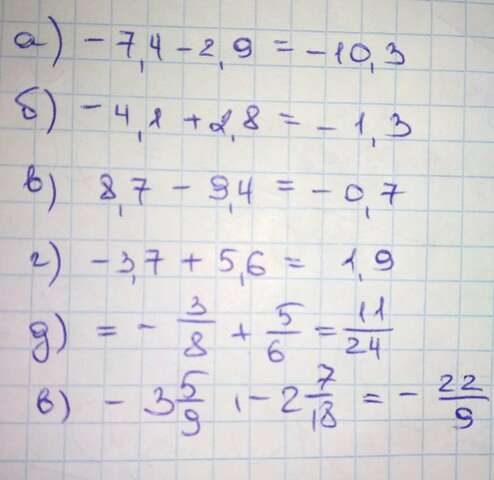 а) - 7,4 - 2,9 = - 10,3
б) - 4,1 + 2,8 = - 1,3
в) 8,7 - 9,4 = - 0,7
г) - 3,7 + 5,6 = 1,9
д) = - 3/8 + 5/6 = 11/24
в) - 3 5/9 , - 2 7/18 = - 22/9